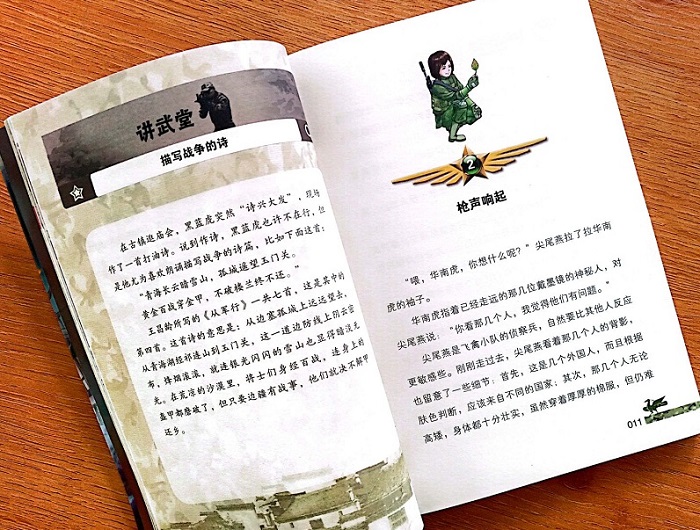 讲武堂
描写战争的诗
在古镇逛庙会,黑蓝虎突然“诗兴大发”,现场
作了一首打油诗。说到作诗,黑蓝虎也许不在行,但
是他尤为喜欢朗诵描写战争的诗篇,比如下面这首:
“青海长云暗雪山,孤城遥望玉门关。
黄金百战穿金甲,不破楼兰终不还。”
王昌龄所写的《从军行》一共七首,这是其中的
第四首。这首诗的意思是:从边塞孤城上远远望去,
从青海湖经祁连山到玉门关,这一道边防线上阴云密
布,烽烟滚滚,就连银光闪闪的雪山也显得黯淡无
光。在荒凉的沙漠里,将士们身经百战,连身上的
盔甲都磨破了,但只要边疆有战事,他们就决不解甲
还乡。
2
枪声响起
“喂,华南虎,你想什么呢?”尖尾燕拉了拉华南
虎的袖子。
华南虎指着已经走远的那几位戴墨镜的神秘人,对
尖尾燕说:“你看那几个人,我觉得他们有问题。”
尖尾燕是飞禽小队的侦察兵,自然要比其他人反应
更敏感些。刚刚走过去,尖尾燕看着那几个人的背影,
也留意了一些细节:首先,这是几个外国人,而且根据
肤色判断,应该来自不同的国家;其次,那几个人无论
高矮,身体都十分壮实,虽然穿着厚厚的棉服,但仍难
011